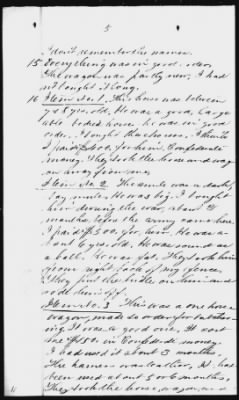 5
I don't remember the names.
15 Everything was in good order.
The wagon was partly new, I had
not bought it long.
16 Item No. 1. This horse was between
7 & 8 yrs. old. He was a good, large
able bodied horse. he was in good
order. I bought the horse. I think
I paid $400, for him. Confederate
money. They took the horse and wag-
on away from me.
Item No. 2. The mule was a dark,
bay mule. He was big. I bought
him during the war, about
months, before the army came here.
I paid $500. for, him. He was a-
bout 6 yrs. old. He was round as
a ball. He was fat. They took him
from right back of my fence.
They put the bridle on him and
rode him off.
Item No. 3 This was a one horse
wagon, made to order for
It was a good one. It cost
me $150. in Confed. money.
I had used it about 3 months.
The harness was leather, it had
been used about 5 or 6 months.
They took the horse, wagon, and